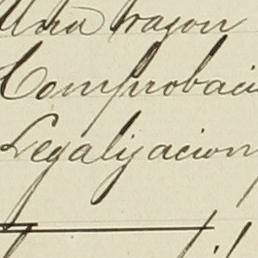 razon
Comprobaci
Legalizacion